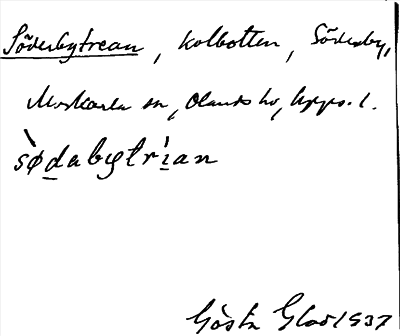 Söderbytrean, kolbotten, Söderby,
Morkarla sn, Olands hd, Upps. l.
sø̀dabytrìan
Gösta Glad 1937